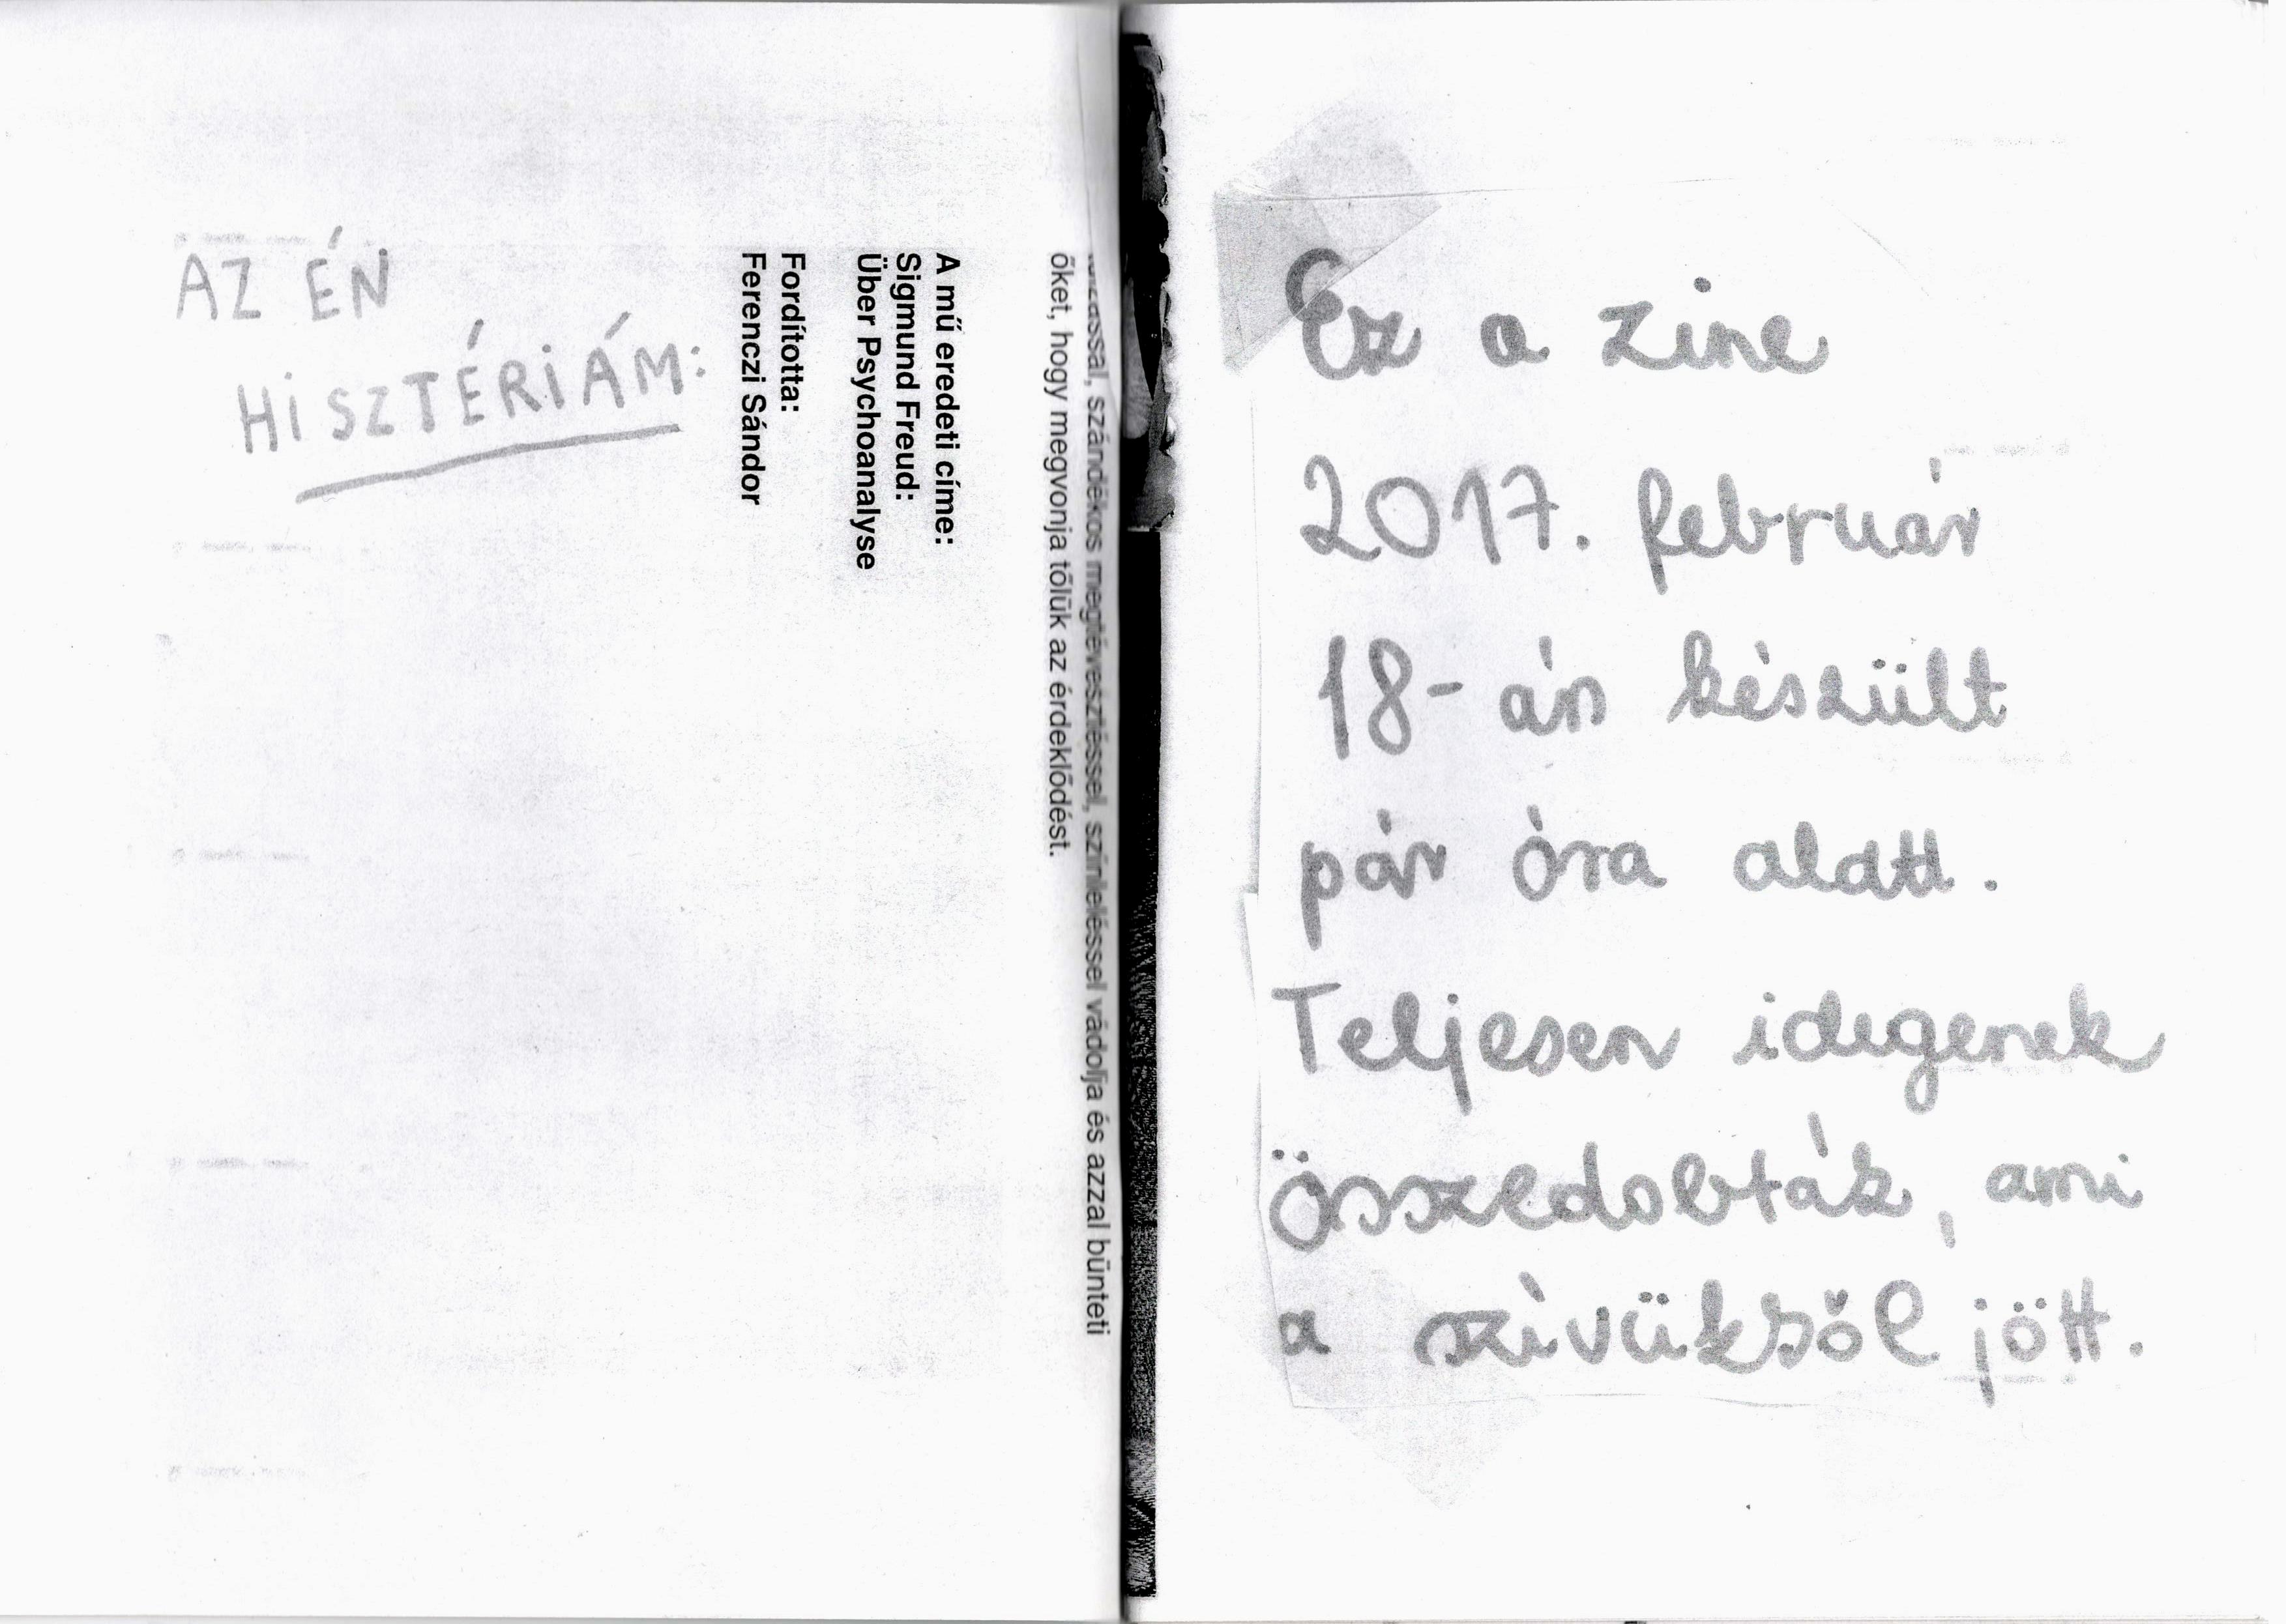 AZ ÉN
HISZTÉRIÁM:
szándékos megtévesztéssel, színleléssel vádolja és azzal bünteti
őket, hogy megvonja tőlük az érdeklődést.
A mű eredeti címe:
Sigmund Freud:
Über Psychoanalyse
Fordította:
Ferenczi Sándor
Ez a zine
2017. február
18-án készült
pár óra alatt.
Teljesen idegenek
összedobták, ami
a szívükből jött.